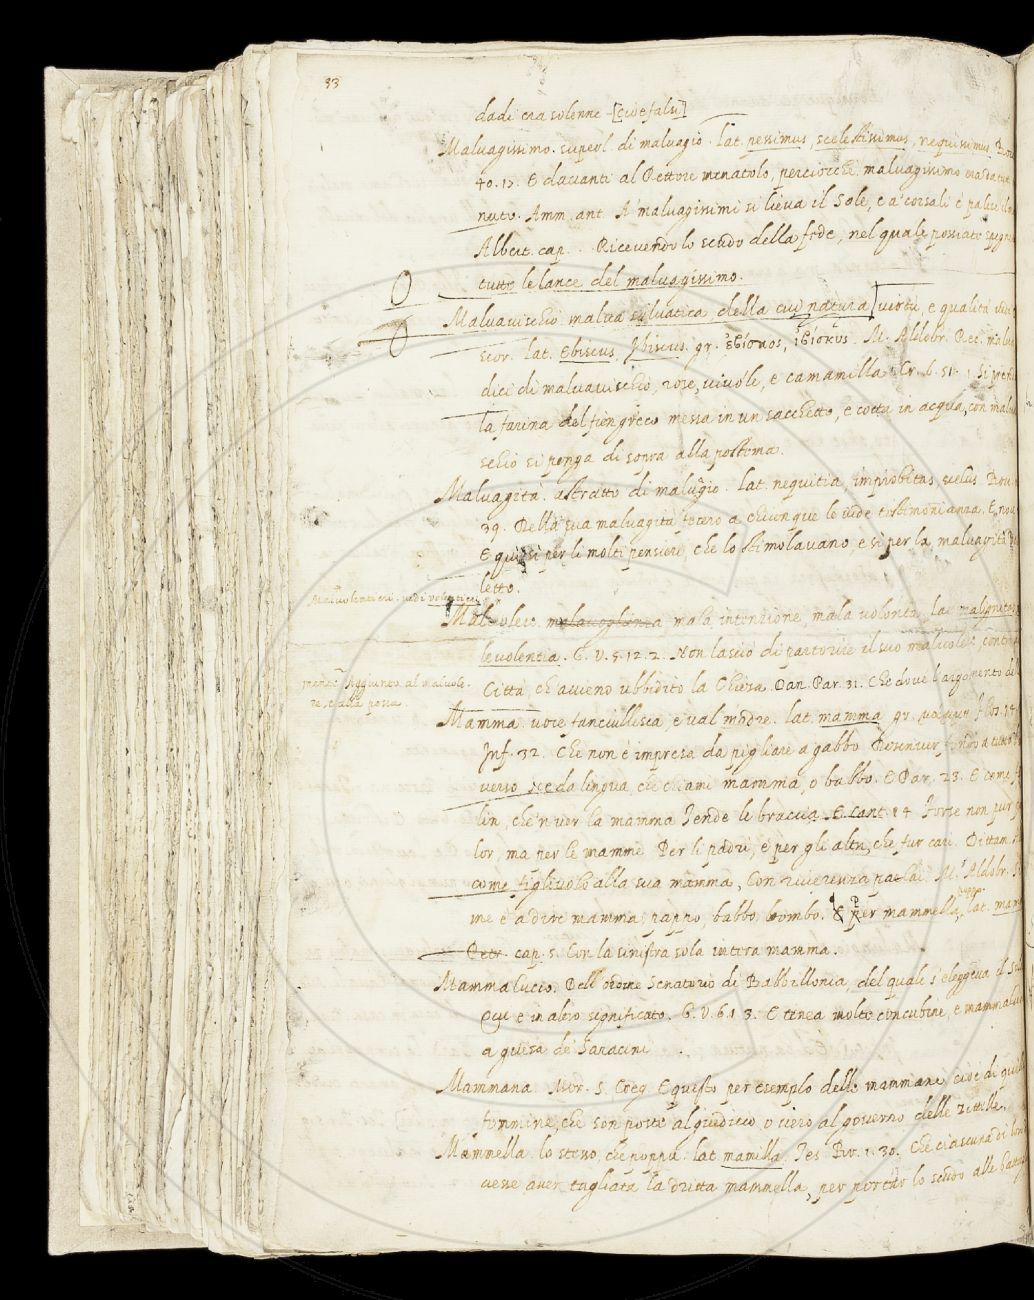 33
dadi era solenne [cioè falsi]
Malvagissimo. superl. di malvagio. lat. pessimus, scelestissimus, nequissimus
40.12. E davanti al Rettore menatolo, perciocchè malvagissimo
nuto. Amm. ant. A' malvagissimi si lieva il Sole, e a' corsali è palese
Albert. cap. . Ricevendo lo scudo della fede, nel quale possiate
tutte le lance del malvagissimo.
Malvavischio malva salvatica della cui natura virtù, e qualità
scor. lat. Ebiscus, Ibiscus. gr. ἐβίσκος, ἰβίσκος. M. Aldobr.
dici di malvavischio, rose, vivole, e camamilla. Cr. 6. 51.
la farina del fiengreco messa in un sacchetto, e cotta in acqua, con
schio si ponga di sopra alla postema.
Malvagità. astratto di malvagio. lat. nequitia, improbitas, scelus.
39. Della sua malvagità fecero a chiunque le vide testimonianza.
E quasi per li molti pensieri, che lo stimolavano, e sì per la malvagità
letto.
Malvolentieri. vedi volentieri
Malvolere. malavoglienza mala intenzione, mala volontà, lat. malignitas
levolentia. G. V. 5. 12. 2. Non lasciò di partorire il suo malvolere contro
Città ch'avieno ubbidito la Chiesa. Dan. Par. 31. Che dove l'argomento
Aggiunto al malvole-
re, e alla possa.
Mamma voce fanciullesca, e val madre. lat. mamma gr.
Inf. 32. Che non è impresa da pigliare a gabbo
verso, nè da lingua, che chiami mamma, o babbo. E Par. 23. E come
lin, che 'n ver la mamma Tende le braccia. E cant. 14 Forse non pur
lor, ma per le mamme Per li padri, e per gli altri, che fur cari. Dittam.
come figliuolo alla sua mamma, Con riverenza parlai. M. Aldobr.
me è a dire mamma, pappo, babbo, bombo. E per mammella, poppa. lat.
Petr. cap. 5. Con la sinistra sola intera mamma.
Mammalucio. Dell' ordine Senatorio di Babillonia, del quali s'eleggeva il
Qui è in altro significato. G. V. 6. 1 3. E tenea molte concubine, e
a guisa de' Saracini.
Mammana Mor. S. Greg. E questo per esemplo delle mammane cioè di
femmine, che son poste al giudicio, o vero al governo delle zittelle.
Mammella. lo stesso, che poppa. lat. mamilla. Tes. Br. 1. 30. Che ciascuna di
vesse aver tagliata la dritta mammella, per portar lo scudo alle